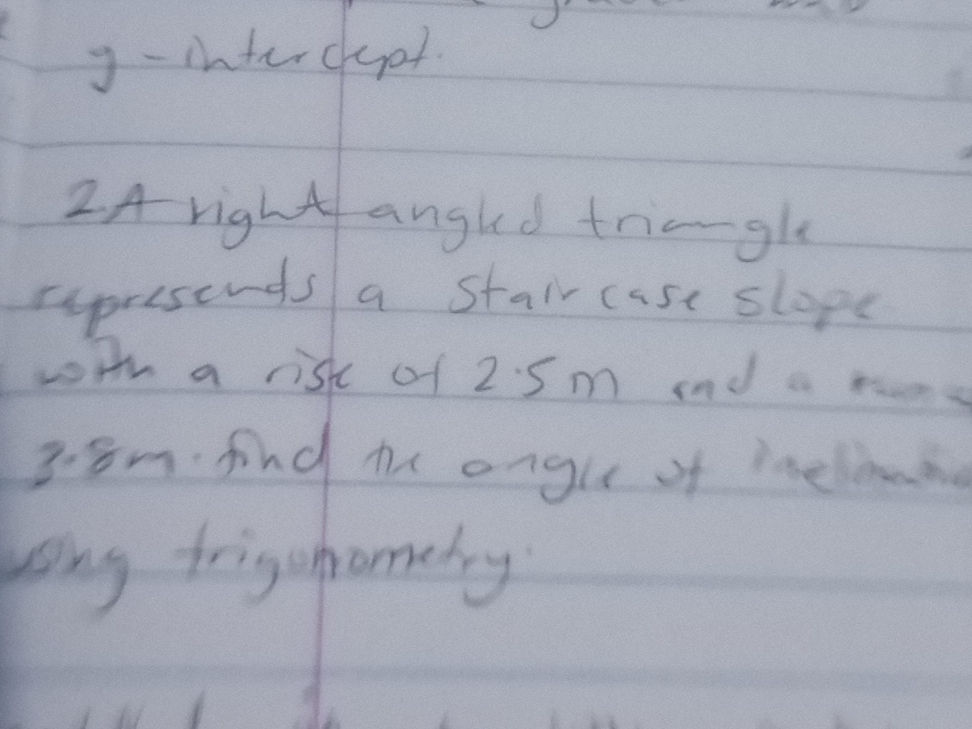 y-intercept.
2 A right angled triangle
represends a Stair case slope
with a rise of 2.5 m and a
3.8m. find the angle of
using trigonometry.